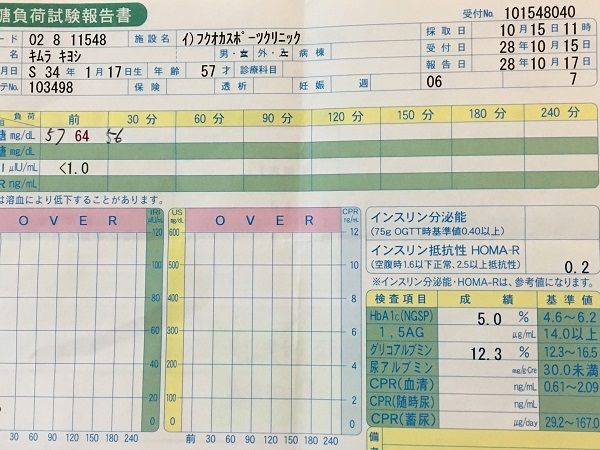 糖負荷試験報告書
受付No. 101548040
ード 02 8 11548 施設名 イ)フクオカスポーツクリニック
採取日 10月15日11時
名 キムラ キヨシ 男・女 外・入 病棟
受付日 28年10月15日
月日 S 34年 1月17日生 年齢 57才 診療科目
報告日 28年10月17日
テNo. 103498 保険 透析 妊娠 週 06 7
負荷 前 30分 60分 90分 120分 150分 180分 240分
糖 mg/dL 57 64 56
糖 mg/dL
I μIU/mL <1.0
R ng/mL
は溶血により低下することがあります。
O V E R IRI μIU/mL US mg/dL O V E R CPR ng/mL
120 600 12
100 500 10
80 400 8
60 300 6
40 200 4
20 100 2
0 0
30 60 90 120 150 180 240 前 30 60 90 120 150 180 240
インスリン分泌能
(75g OGTT時基準値0.40以上)
インスリン抵抗性 HOMA-R
(空腹時1.6以下正常、2.5以上抵抗性) 0.2
※インスリン分泌能・HOMA-Rは、参考値になります。
検査項目 成績 基準値
HbA1c(NGSP) 5.0 % 4.6~6.2
1,5AG μg/mL 14.0以上
グリコアルブミン 12.3 % 12.3~16.5
尿アルブミン mg/g・Cre 30.0未満
CPR(血清) ng/mL 0.61~2.09
CPR(随時尿) ng/mL
CPR(蓄尿) μg/day 29.2~167.0
備